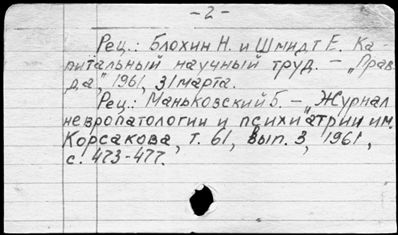 - 2 -
Рец.: Блохин Н. и Шмидт Е. Ка-
питальный научный труд. - „Прав-
да" 1961, 31 марта.
Рец.: Маньковский Б. - „Журнал
невропатологии и психиатрии им.
Корсакова, т. 61, вып. 3, 1961,
с. 473-477.